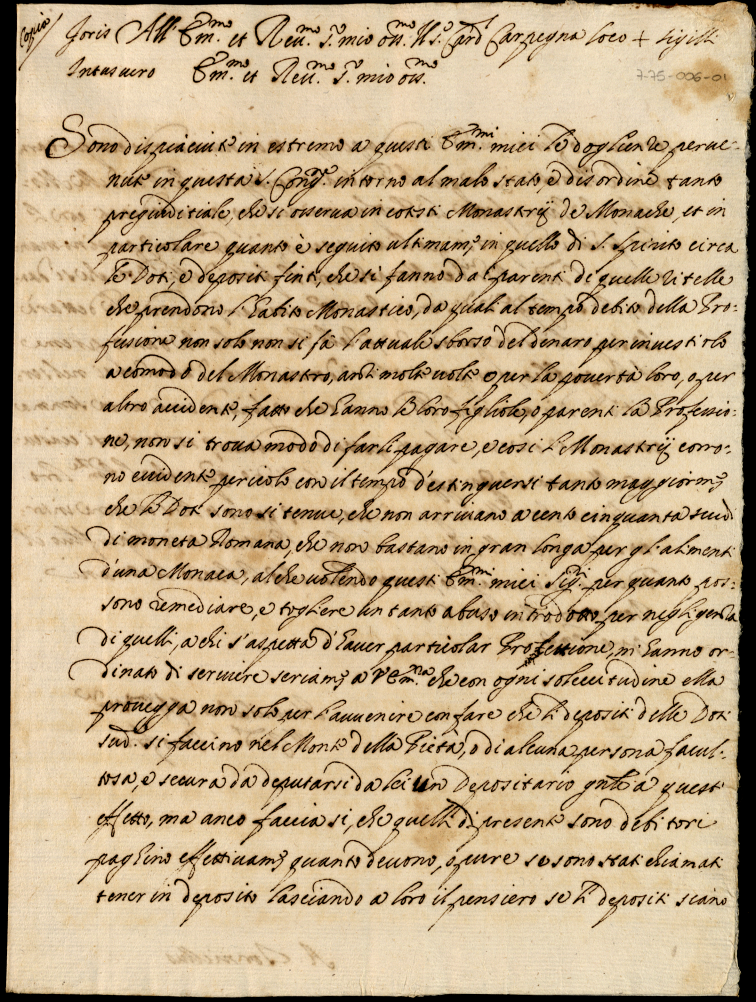 Copia
Foris All' Em.mo et Reu.mo S.r mio oss.mo Il S.r Card.l Carpegna loco + sigilli
Intus uero Em.mo et Reu.mo S.r mio oss.mo
7-75-006-01
Sono dispiaciute in estremo a questi Em.mi miei le doglienze perue-
nute in questa S. Cong.e intorno al malo stato, e disordine tanto
pregiuditiale, che si osserua in cotesti Monasterij de Monache, et in
particolare quanto è seguito ultimam.e in quello di S. Spirito circa
le Doti, e depositi finti, che si fanno da parenti di quelle Zitelle
che prendono l'Habito Monastico, da quali al tempo debito della Pro-
fessione non solo non si fà l'attuale sborso del denaro per inuestirlo
a comodo del Monastro, anzi molte uolte o per la pouertà loro, o per
altro accidente, fatto che hanno le loro figliole, o parenti la Professio-
ne, non si troua modo di farli pagare, e così li Monasterij corro-
no euidente pericolo con il tempo d'estinguersi tanto maggiorm.e
che le Doti sono si tenue, che non arriuano a cento cinquanta scudi
di moneta Romana, che non bastano in gran longa per gl'alimenti
d'una Monaca, al che uolendo questi Em.mi miei Sig.ri per quanto pos-
sono remediare, e togliere un tanto abuso introdotto per negligenza
di quelli, a chi s'aspetta d'hauer particolar Protettione, mi hanno or-
dinato di scriuere seriam.e a V. Em.za che con ogni sollecitudine ella
prouegga non solo per l'auuenire con fare che li depositi delle Doti
sud.e si faccino nel Monte della Pietà, o di alcuna persona facul-
tosa, e secura da deputarsi da lei un Depositario gn̄le a questi
effetto, ma anco faccia si, che quelli di presente sono debitori
paghino effettiuam.e quanto deuono, o pure se sono stati chiamati
tener in deposito lasciando a loro il pensiero se li depositi siano